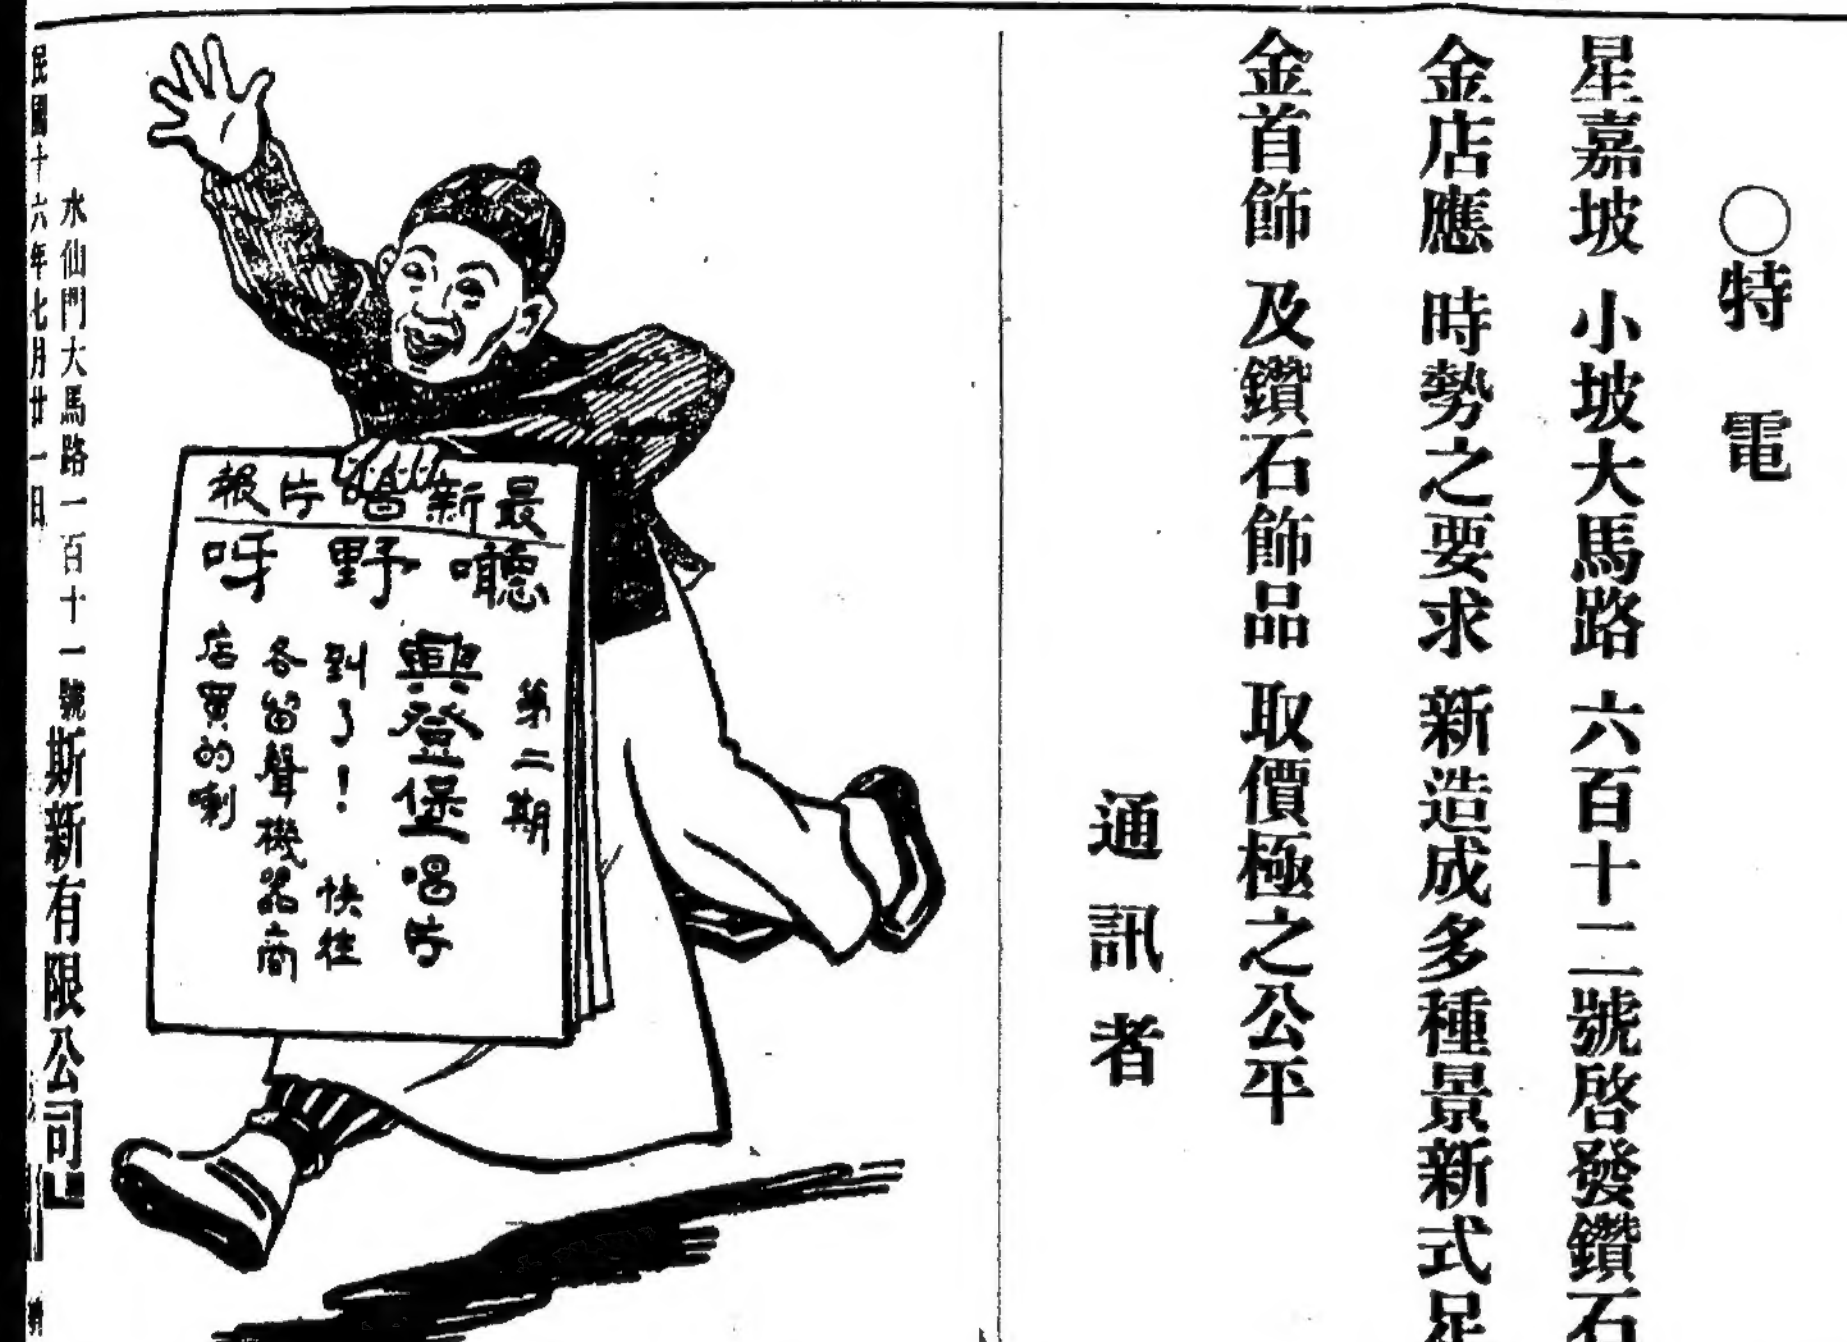 ○特電
星嘉坡 小坡大馬路 六百十二號啓發鑽石
金店應 時勢之要求 新造成多種景新式足
金首飾 及鑽石飾品 取價極之公平
通訊者
最新唱片報
聽野呀
第二期
興登堡唱片
到了！ 快往
各留聲機器商
店買的喇
水仙門大馬路一百十一號 斯新有限公司
民國十六年七月廿一日